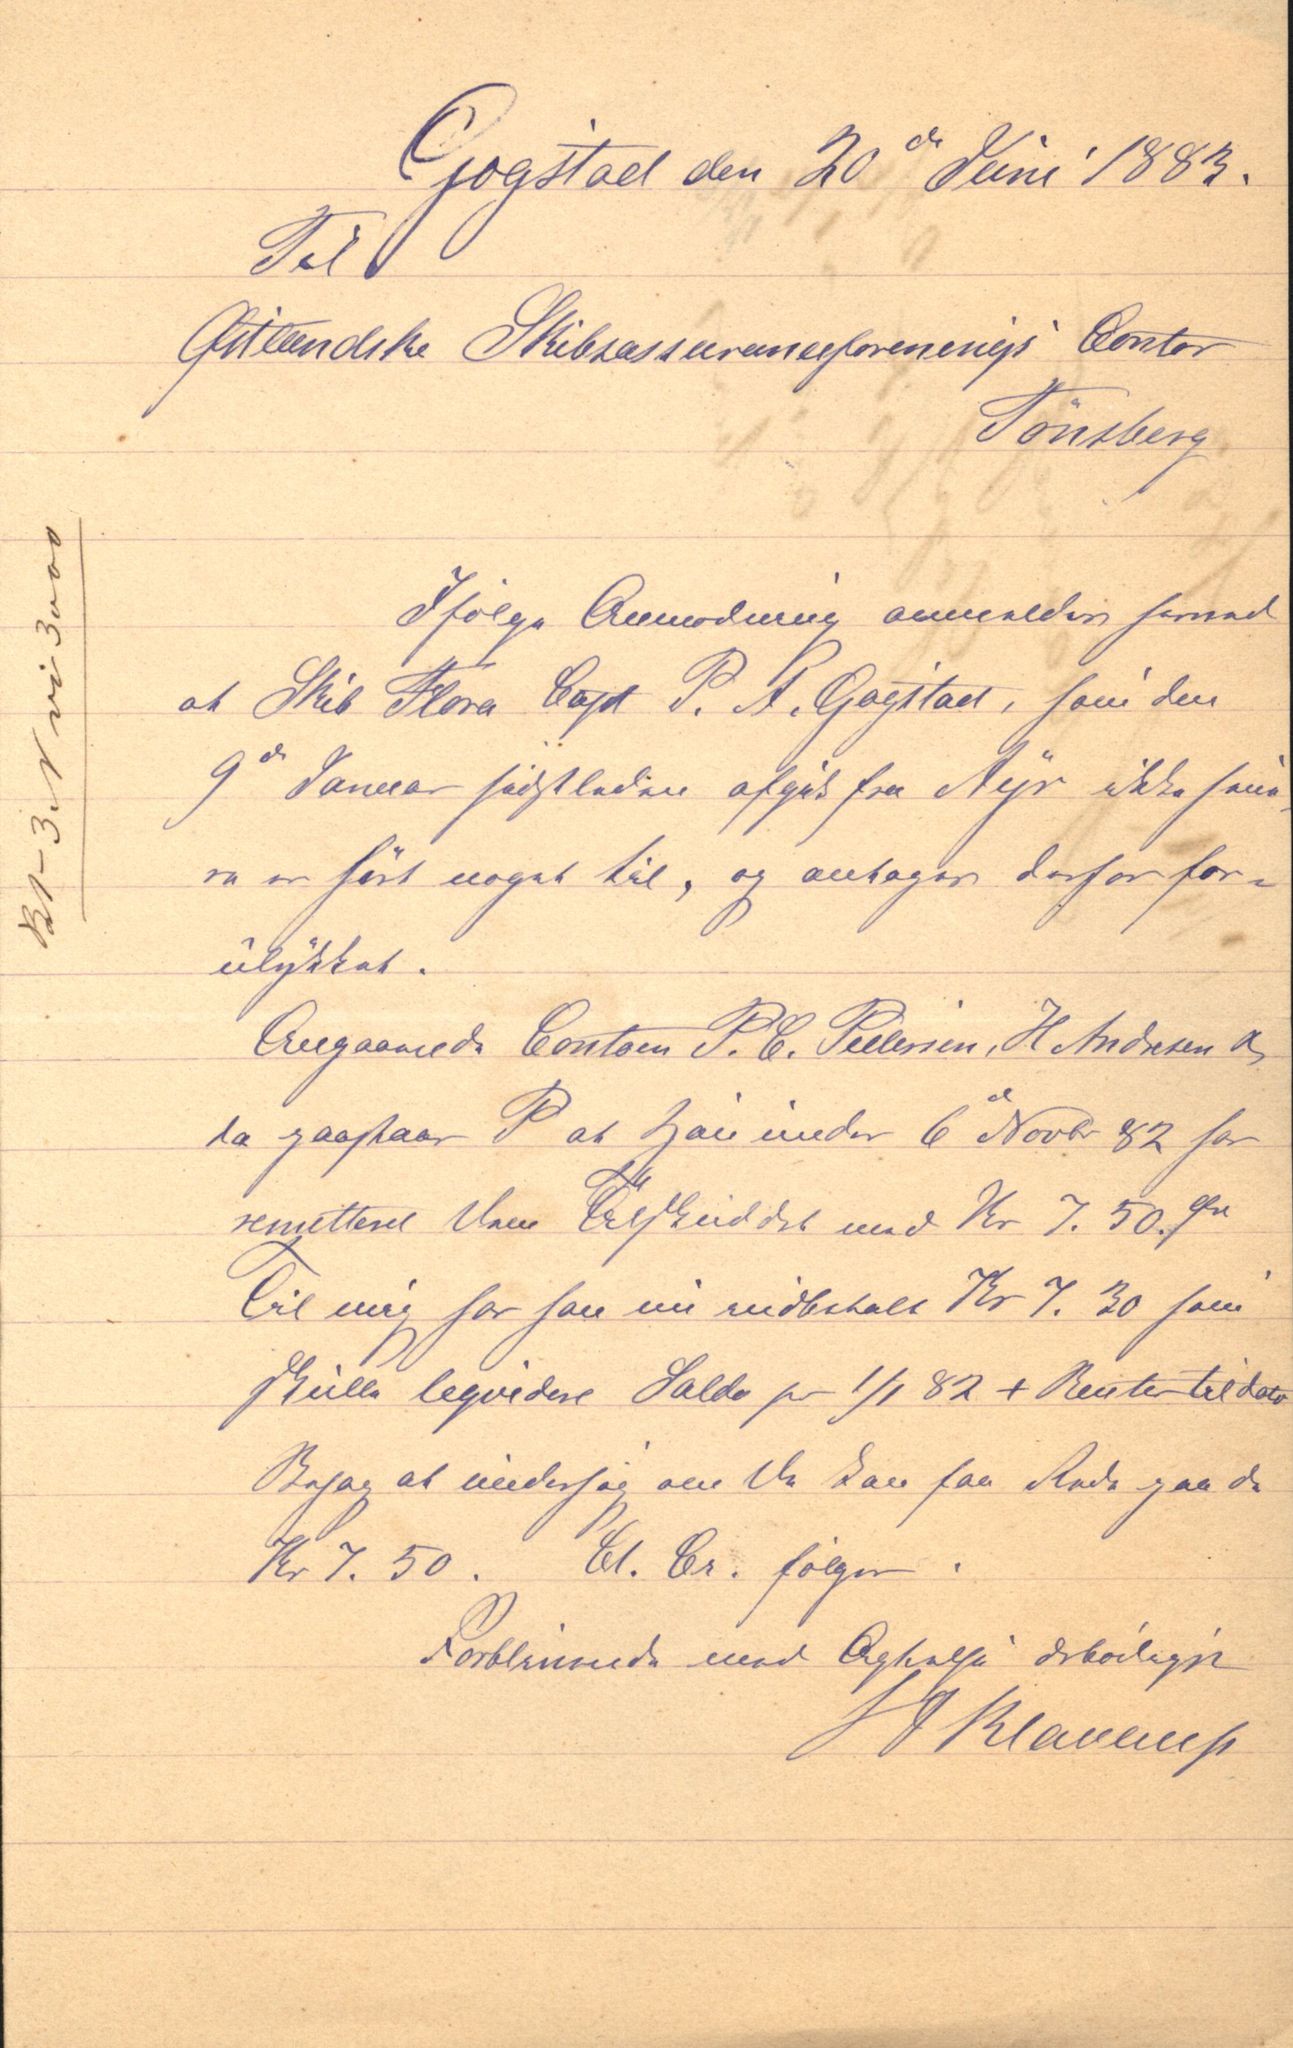 Gogstad den 20de Juni 1883.
Til
Østlandske Skibsassuranceforenings Contor
Tönsberg
Ifölge Anmodning anmeldes herved
at Skib Flora Capt P. A. Gogstad, som den
9de Januar sidstleden afgik fra Ayr ikke sene-
re er hört noget til, og antages derfor for-
ulykket.
Angaaende Contoen P. C. Pedersen, H Andresen
da paastaar P at han under 6d Novbr 82 har
remitteret Dem Tilskuddet med Kr 7.50.
Til mig har han nu indbetalt Kr 7.30 som
skulle leqvidere Saldo pr 1/1 82 + Renter til dato
Behag at undersøg om De kan faa Rede paa de
Kr 7.50. Ct. Cr. følger.
Forblivende med Agtelse ærbödigst